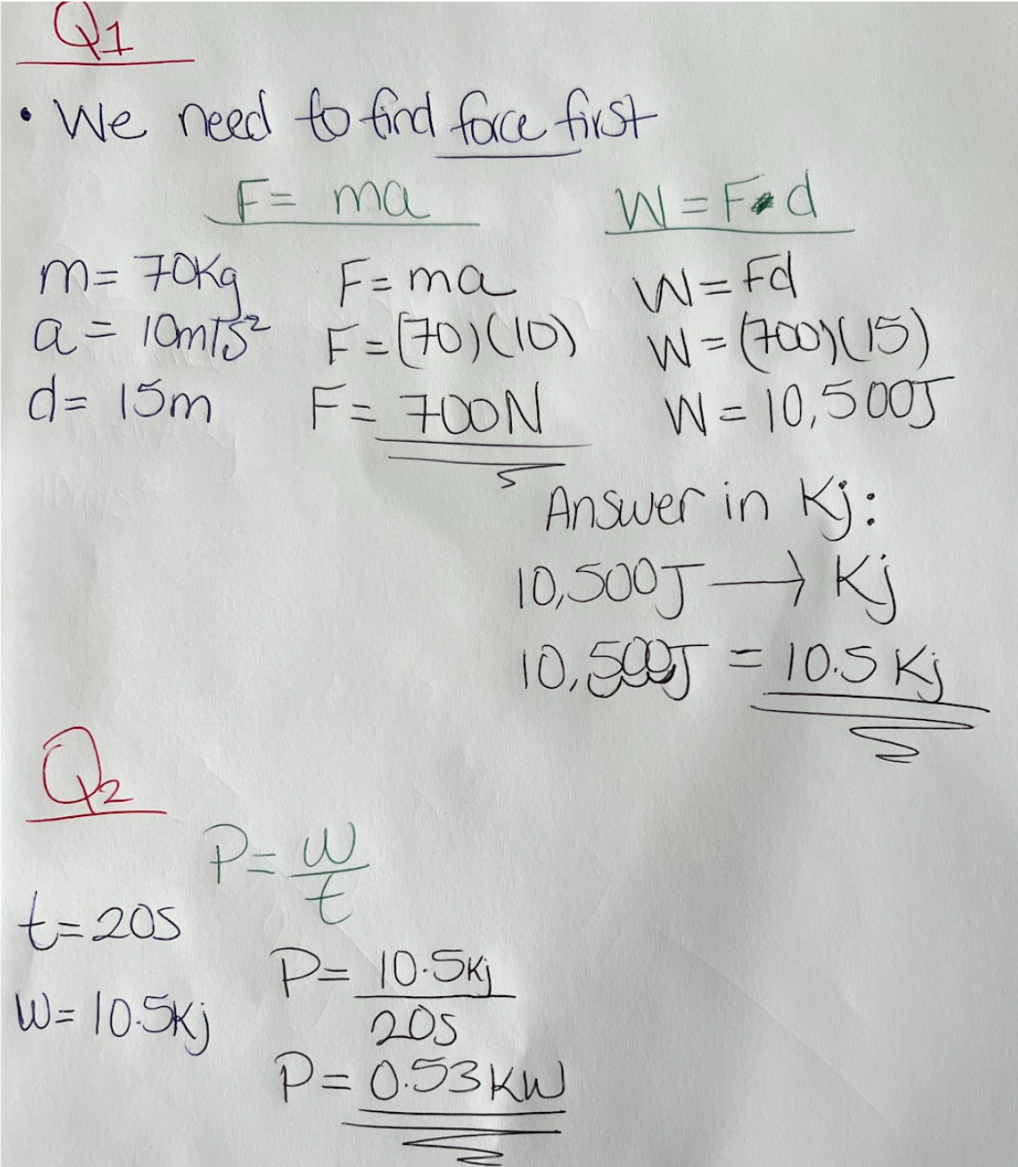 Q1
• We need to find force first
F= ma
W=F•d
m= 70Kg
a= 10m/s²
d= 15m
F=ma
F=(70)(10)
F= 700N
W=Fd
W=(700)(15)
W=10,500J
Answer in Kj:
10,500J → Kj
10,500J = 10.5 Kj
Q2
P=w/t
t=20s
W=10.5Kj
P= 10.5Kj/20s
P= 0.53KW